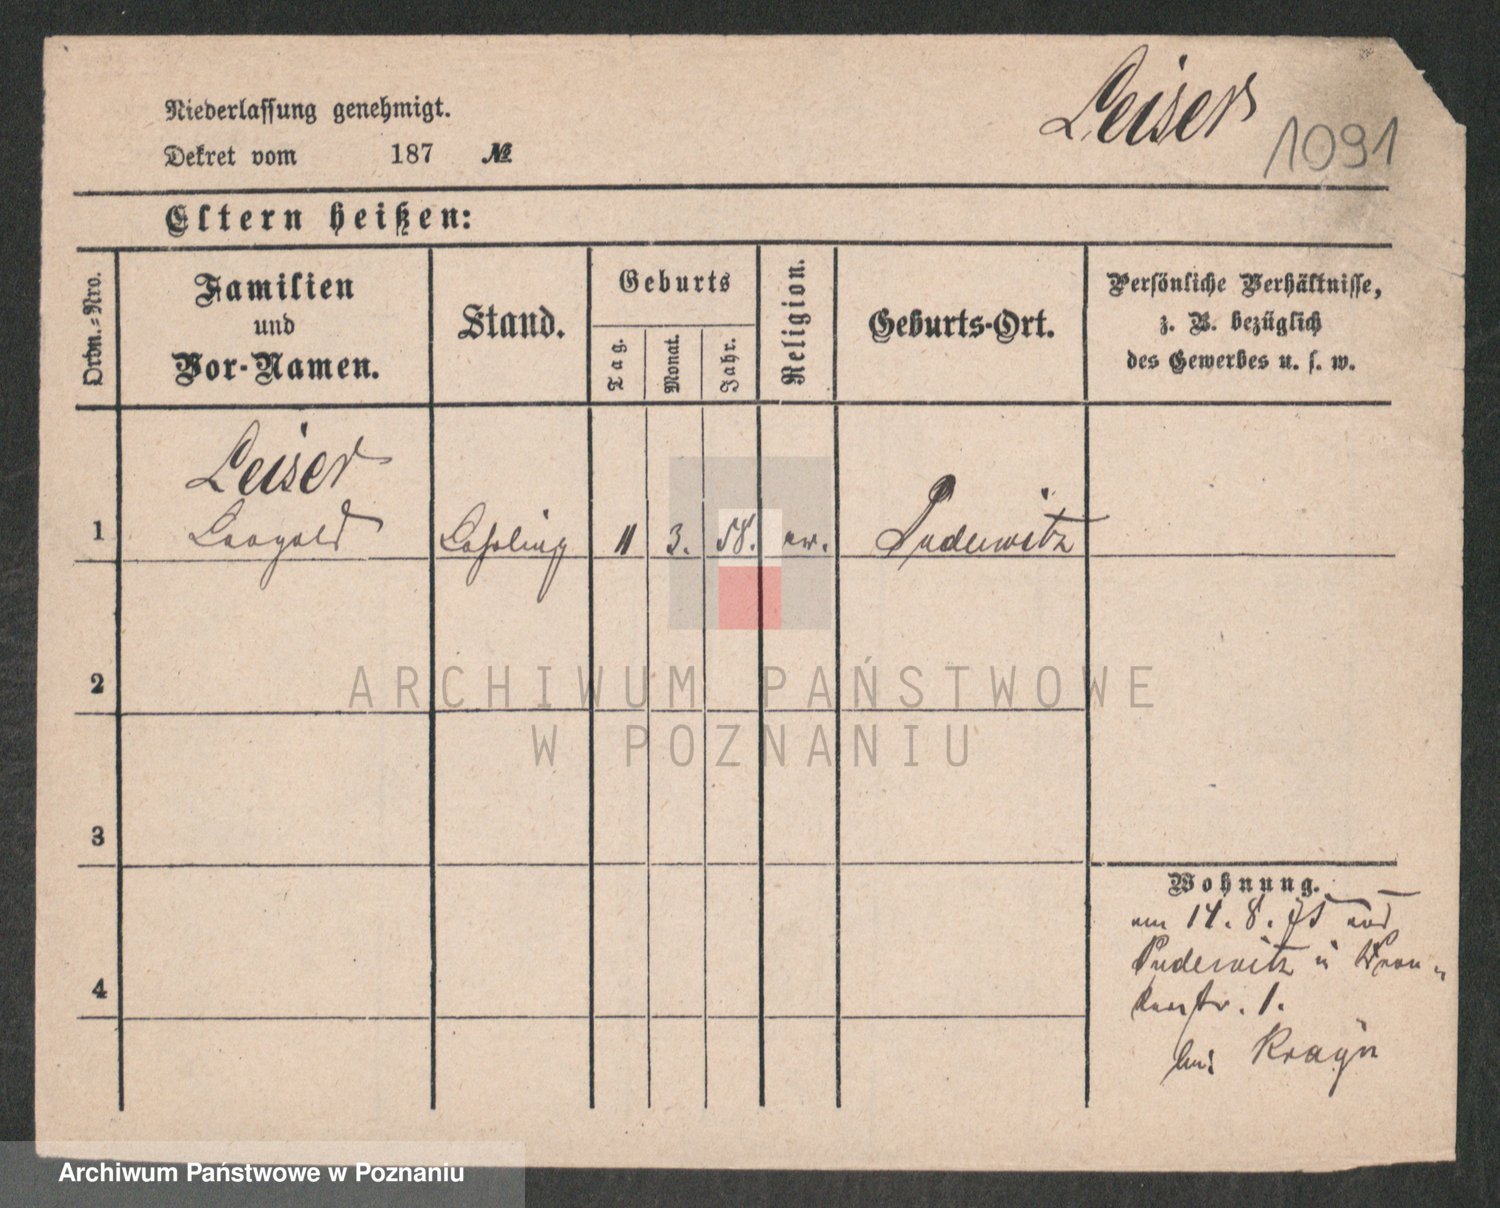 Leiser
1091
Niederlassung genehmigt.
Dekret vom 187 №
Eltern heißen:
Ordn.-Nro.
Familien
und
Vor-Namen.
Stand.
Geburts
Tag.
Monat.
Jahr.
Religion.
Geburts-Ort.
Persönliche Verhältnisse,
z. B. bezüglich
des Gewerbes u. s. w.
Leiser
1 Leopold Lehrling 11 3. 58. Pudewitz
2
3
4
Wohnung.
am 14. 8. 75 aus
Pudewitz
str. 1.
bei Krayn
ARCHIWUM PAŃSTWOWE
W POZNANIU
Archiwum Państwowe w Poznaniu